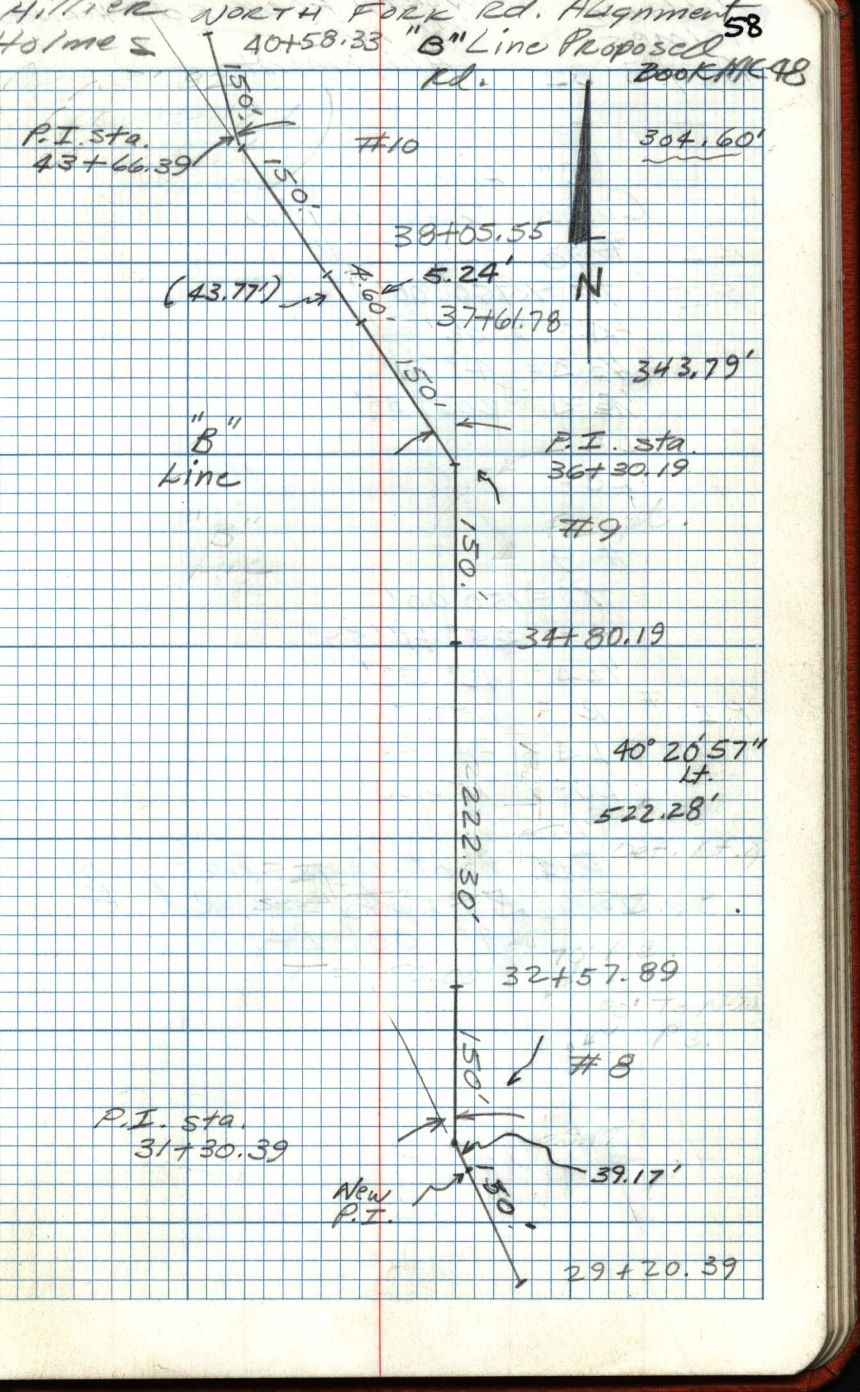 Hillier NORTH FORK Rd. Alignment 58
Holmes 40+58.33 "B" Line Proposed
Rd. Book HC 48
150'
P.I. sta.
43+66.39
#10
304.60'
150'
38+05.55
(43.77')
4.60-
5.24'
N
37+61.78
343.79'
150'
"B"
Line
P.I. sta.
36+30.19
#9
150.'
34+80.19
40° 20' 57"
Lt.
522.28'
222.30'
32+57.89
150'
#8
P.I. sta.
31+30.39
39.17'
New
P.I.
150.'
29+20.39